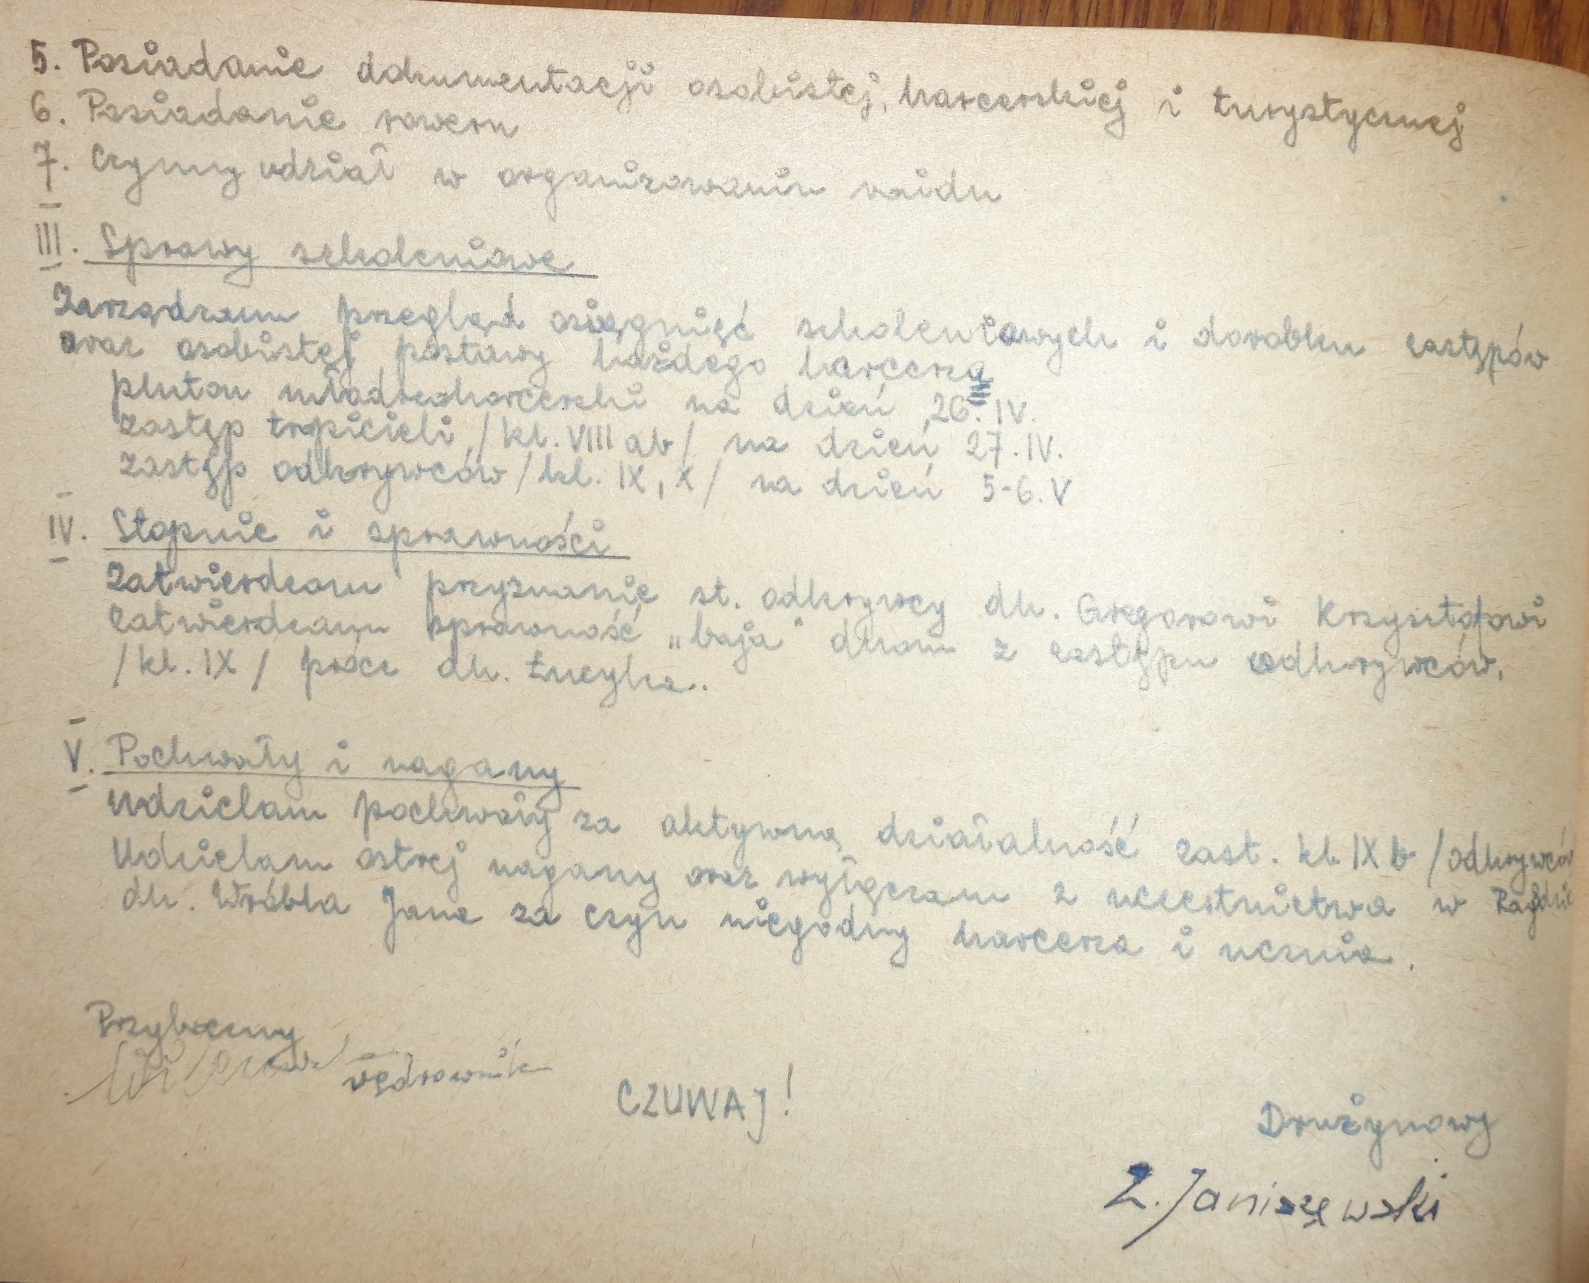 5. Posiadanie dokumentacji osobistej, harcerskiej i turystycznej
6. Posiadanie roweru
7. Czynny udział w organizowaniu raidu
III. Sprawy szkoleniowe
Zarządzam przegląd osiągnięć szkoleniowych i dorobku zastępów
oraz osobistej postawy każdego harcerza
pluton młodszoharcerski na dzień 26. IV.
zastęp tropicieli /kl. VIII ab/ na dzień 27. IV.
zastęp odkrywców /kl. IX, X/ na dzień 5-6. V
IV. Stopnie i sprawności
Zatwierdzam przyznanie st. odkrywcy dh. Gregorowi Krzysztofowi
zatwierdzam sprawność „baja” dhom z zastępu odkrywców.
/kl. IX/ prócz dh. Łuczyka.
V. Pochwały i nagany
Udzielam pochwały za aktywną działalność zast. kl. IX b /odkrywców
Udzielam ostrej nagany oraz wyłączam z uczestnictwa w Rajdzie
dh. Wróbla Jana za czyn niegodny harcerza i ucznia.
Przyboczny
wędrownik
CZUWAJ!
Drużynowy
Z. Janiszewski